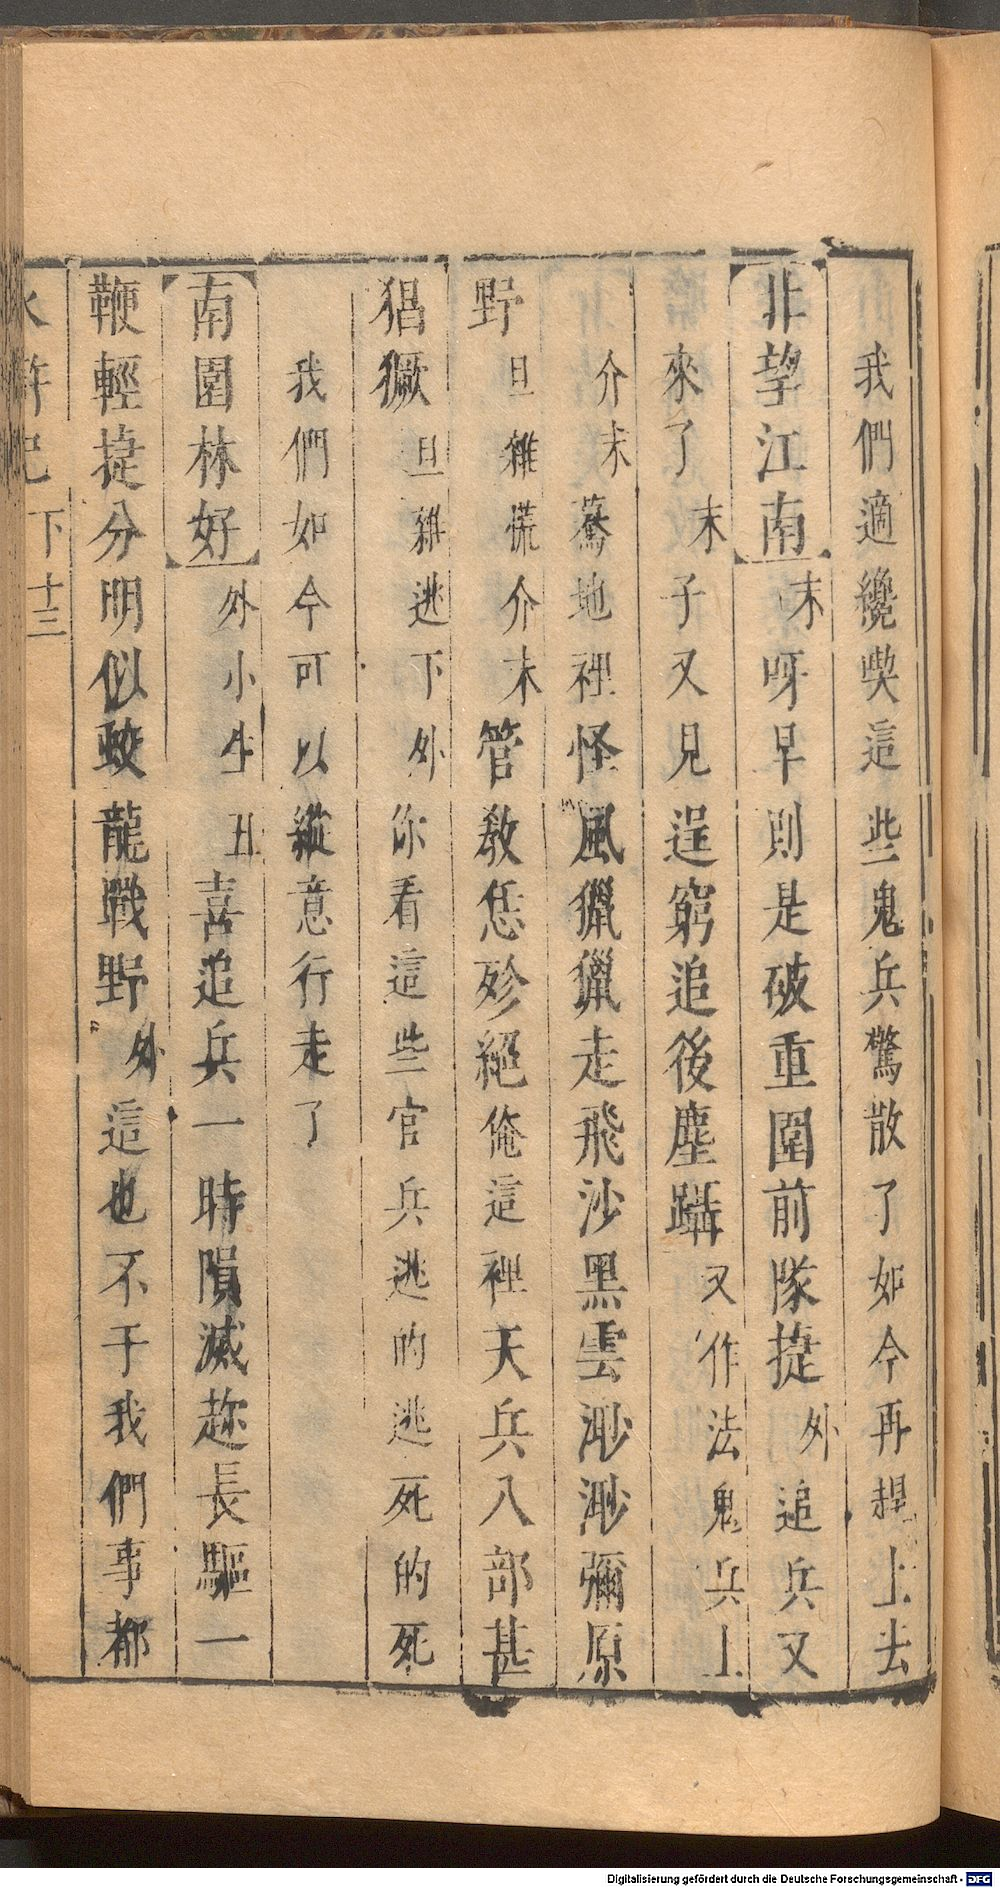 我們適纔喫這些鬼兵驚散了如今再趕上去
非望江南末呀早則是破重圍前隊捷外追兵又
來了末子又見逞窮追後塵躡又作法鬼兵上
介末驀地裡怪風獵獵走飛沙黑雲渺渺彌原
野旦雜慌介末管教恁殄絕俺這裡天兵八部甚
猖獗旦雜逃下外你看這些官兵逃的逃死的死
我們如今可以縱意行走了
南園林好外小生丑喜追兵一時隕滅趂長驅一
鞭輕㨗分明似蛟龍戰野外這也不干我們事都
水滸記 下 十三
Digitalisierung gefördert durch die Deutsche Forschungsgemeinschaft - DFG